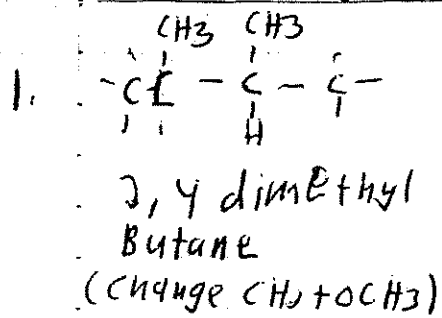 CH3 CH3
1. -CC - C - C -
H
2,4 dimethyl
Butane
(Change CH2 to CH3)